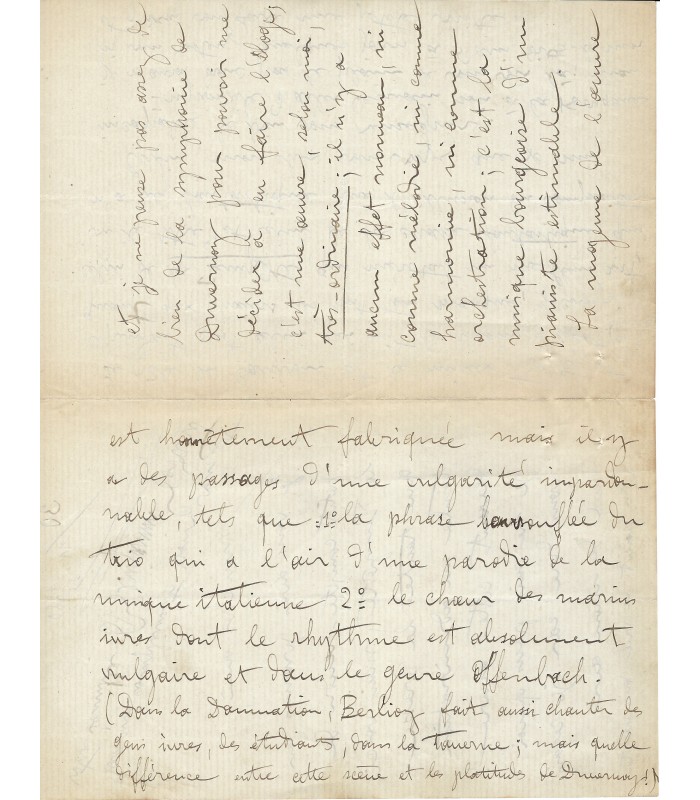 et je ne pense pas assez de
bien de la symphonie de
Duvernoy pour pouvoir me
décider à en faire l'éloge;
c'est une œuvre, selon moi,
très-ordinaire; il n'y a
aucun effet nouveau, ni
comme mélodie, ni comme
harmonie, ni comme
orchestration; c'est la
musique bourgeoise d'un
pianiste estimable.
La moyenne de l'œuvre
est honnêtement fabriquée mais il y
a des passages d'une vulgarité impardon-
nable, tels que: 1º la phrase boursouflée du
trio qui a l'air d'une parodie de la
musique italienne 2º le chœur des marins
ivres dont le rhythme est absolument
vulgaire et dans le genre Offenbach.
(Dans la Damnation, Berlioz fait aussi chanter des
gens ivres, des étudiants, dans la taverne; mais quelle
différence entre cette scène et les platitudes de Duvernoy!)